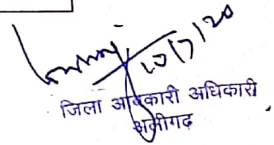 10/7/20
जिला आबकारी अधिकारी
अलीगढ़